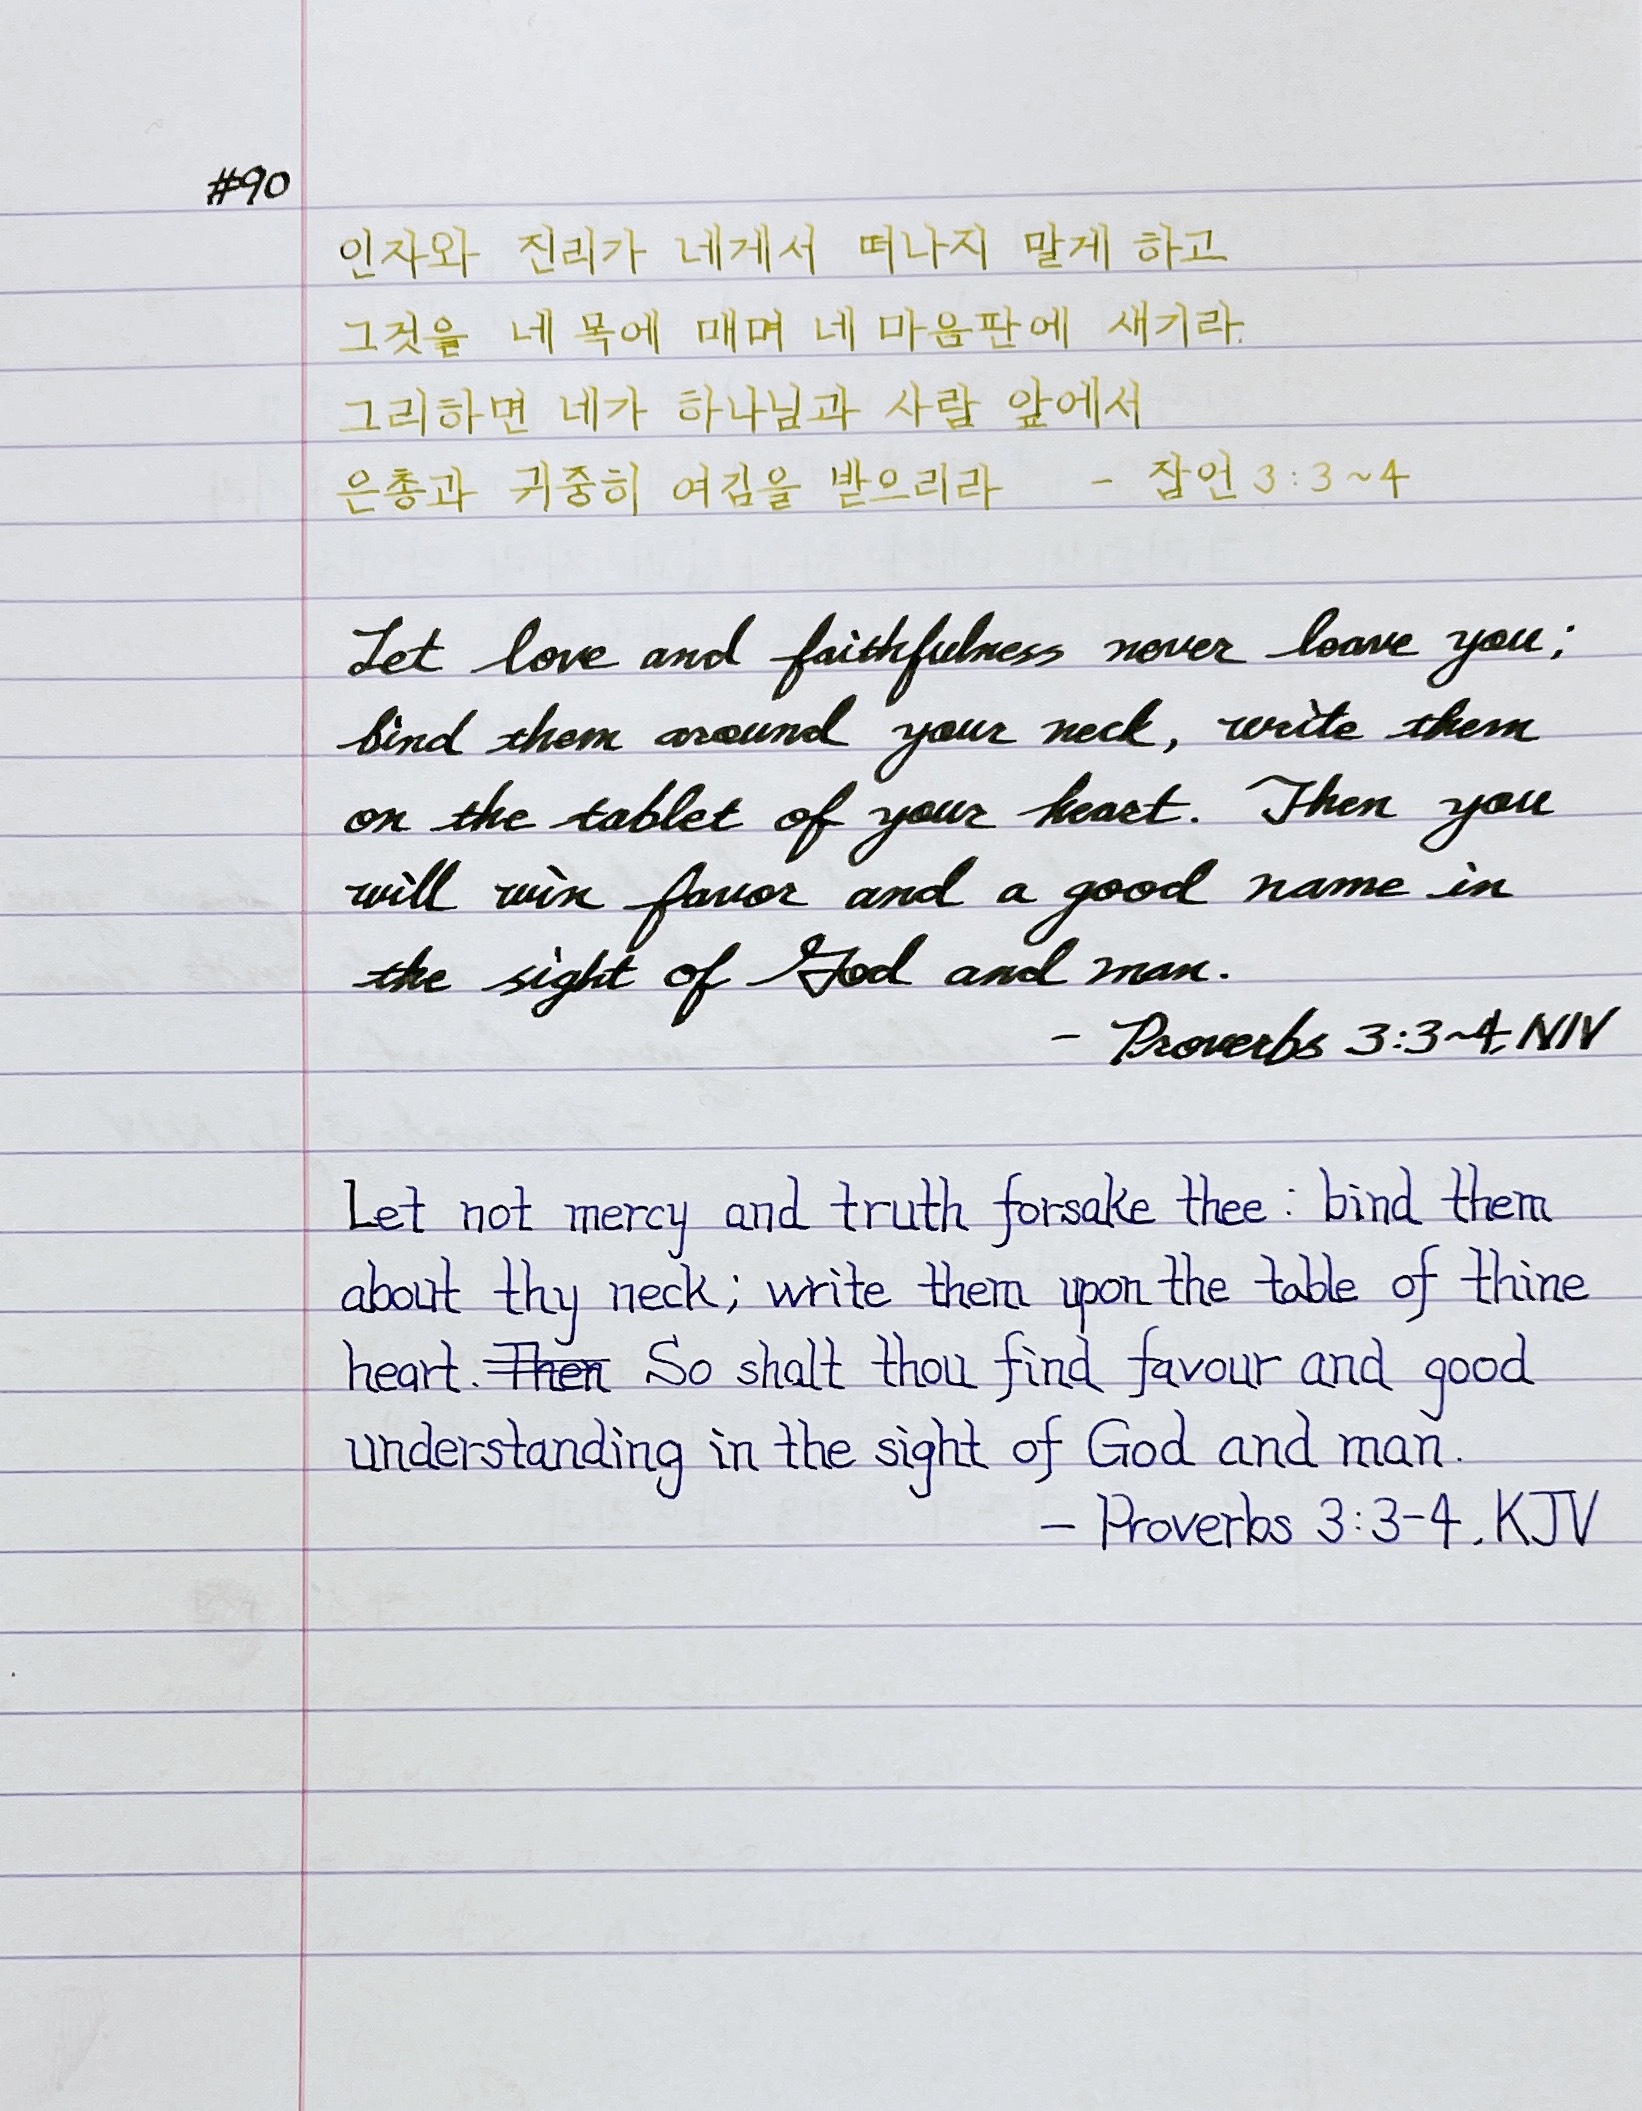 #90
인자와 진리가 네게서 떠나지 말게 하고
그것을 네 목에 매며 네 마음판에 새기라.
그리하면 네가 하나님과 사람 앞에서
은총과 귀중히 여김을 받으리라 - 잠언 3:3~4
Let love and faithfulness never leave you;
bind them around your neck, write them
on the tablet of your heart. Then you
will win favor and a good name in
the sight of God and man.
- Proverbs 3:3~4, NIV
Let not mercy and truth forsake thee: bind them
about thy neck; write them upon the table of thine
heart. Then So shalt thou find favour and good
understanding in the sight of God and man.
- Proverbs 3:3-4. KJV